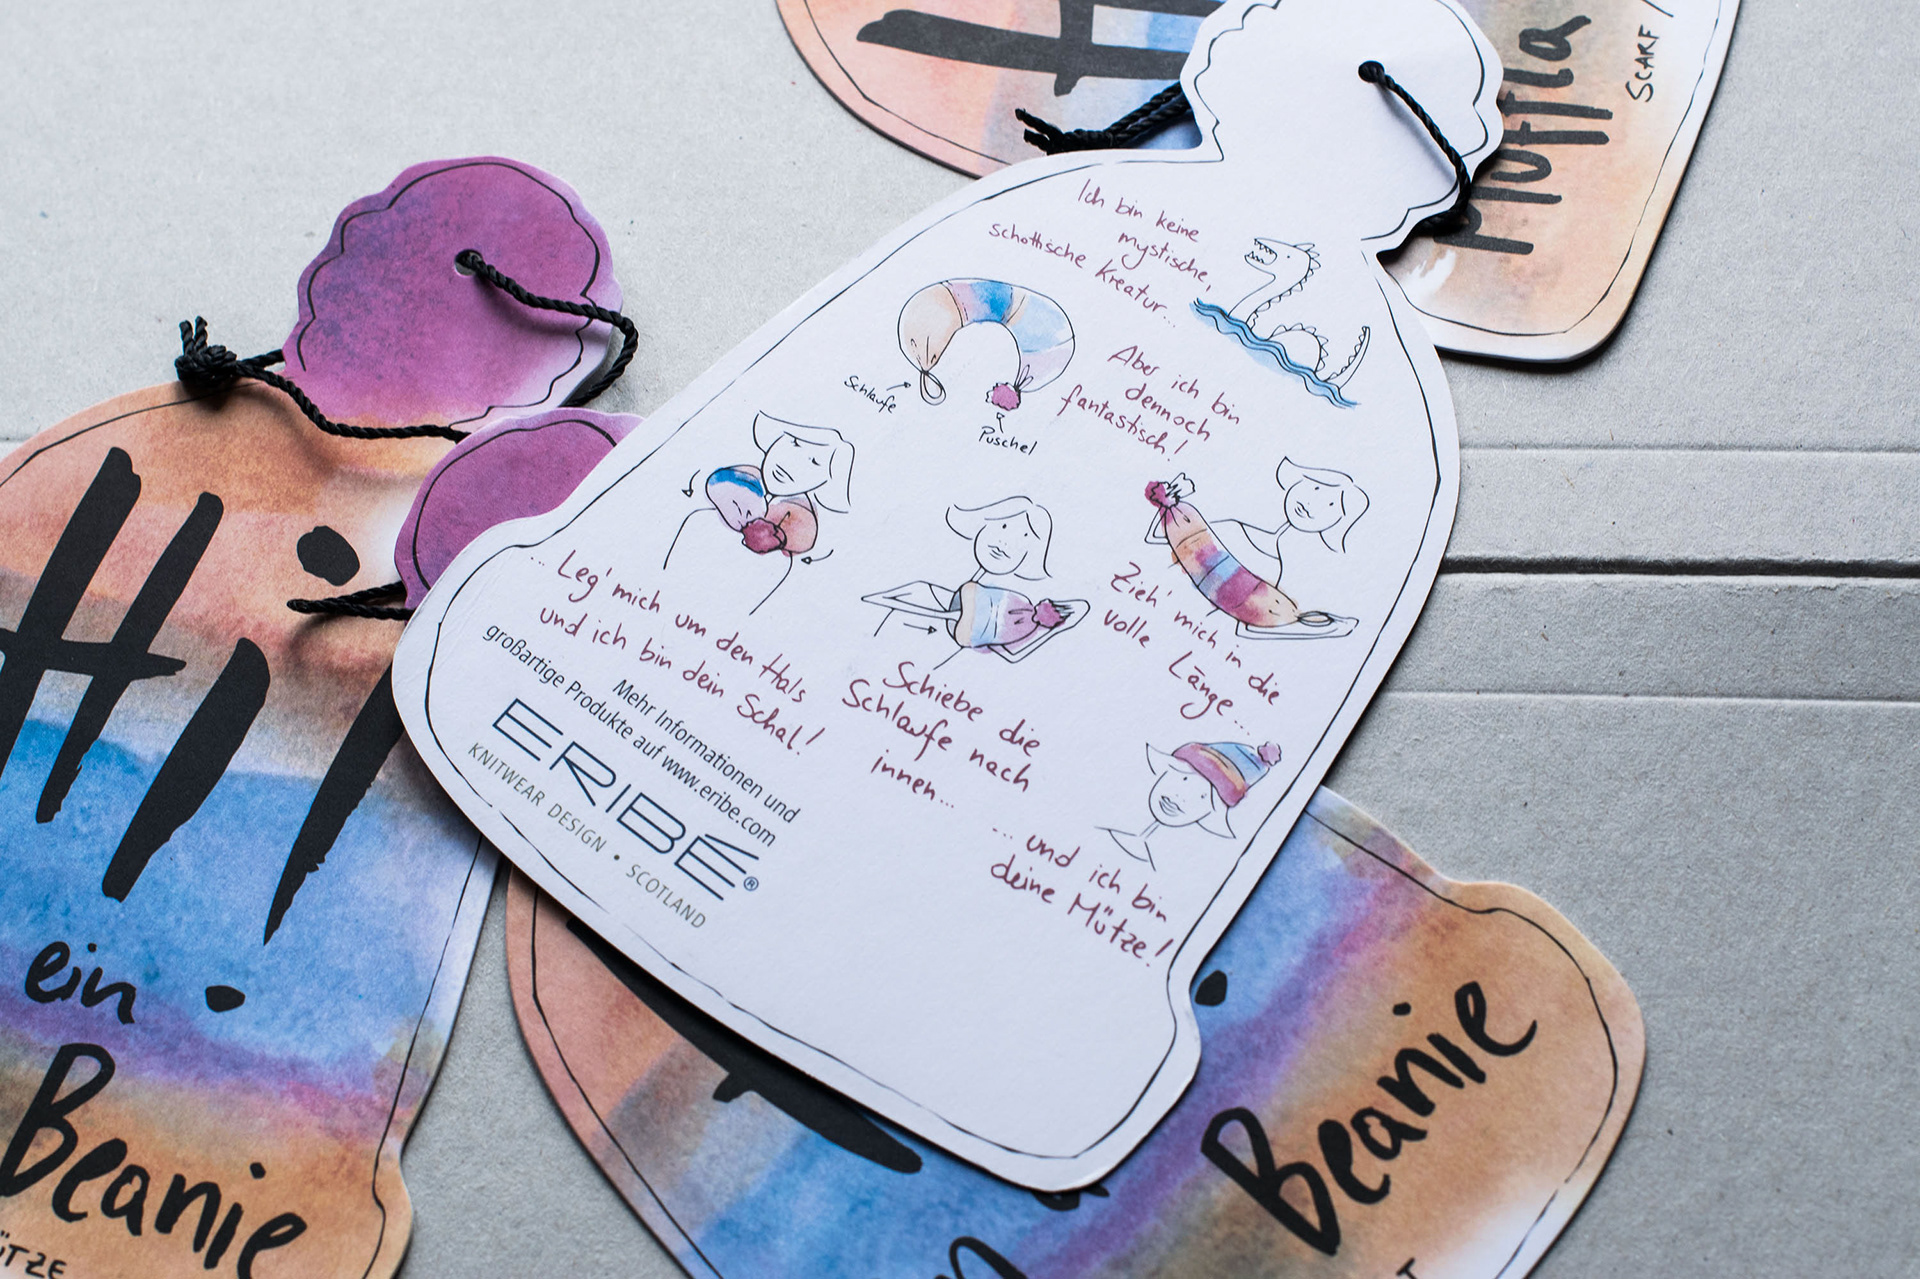 Muffla
SCARF /
Ich bin keine
mystische,
schottische Kreatur...
Aber ich bin
dennoch
fantastisch!
Schlaufe
Puschel
... Leg' mich um den Hals
und ich bin dein Schal!
Schiebe die
Schlaufe nach
innen...
Zieh' mich in die
volle Länge...
... und ich bin
deine Mütze!
Mehr Informationen und
großartige Produkte auf www.eribe.com
ERIBÉ®
KNITWEAR DESIGN • SCOTLAND
Hi
ein
Beanie
Beanie